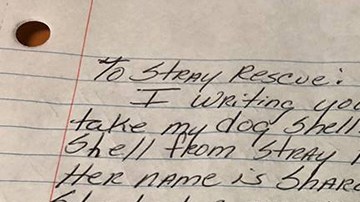 To Stray Rescue:
I writing you
take my dog Shell
Shell from Stray
Her name is Shar